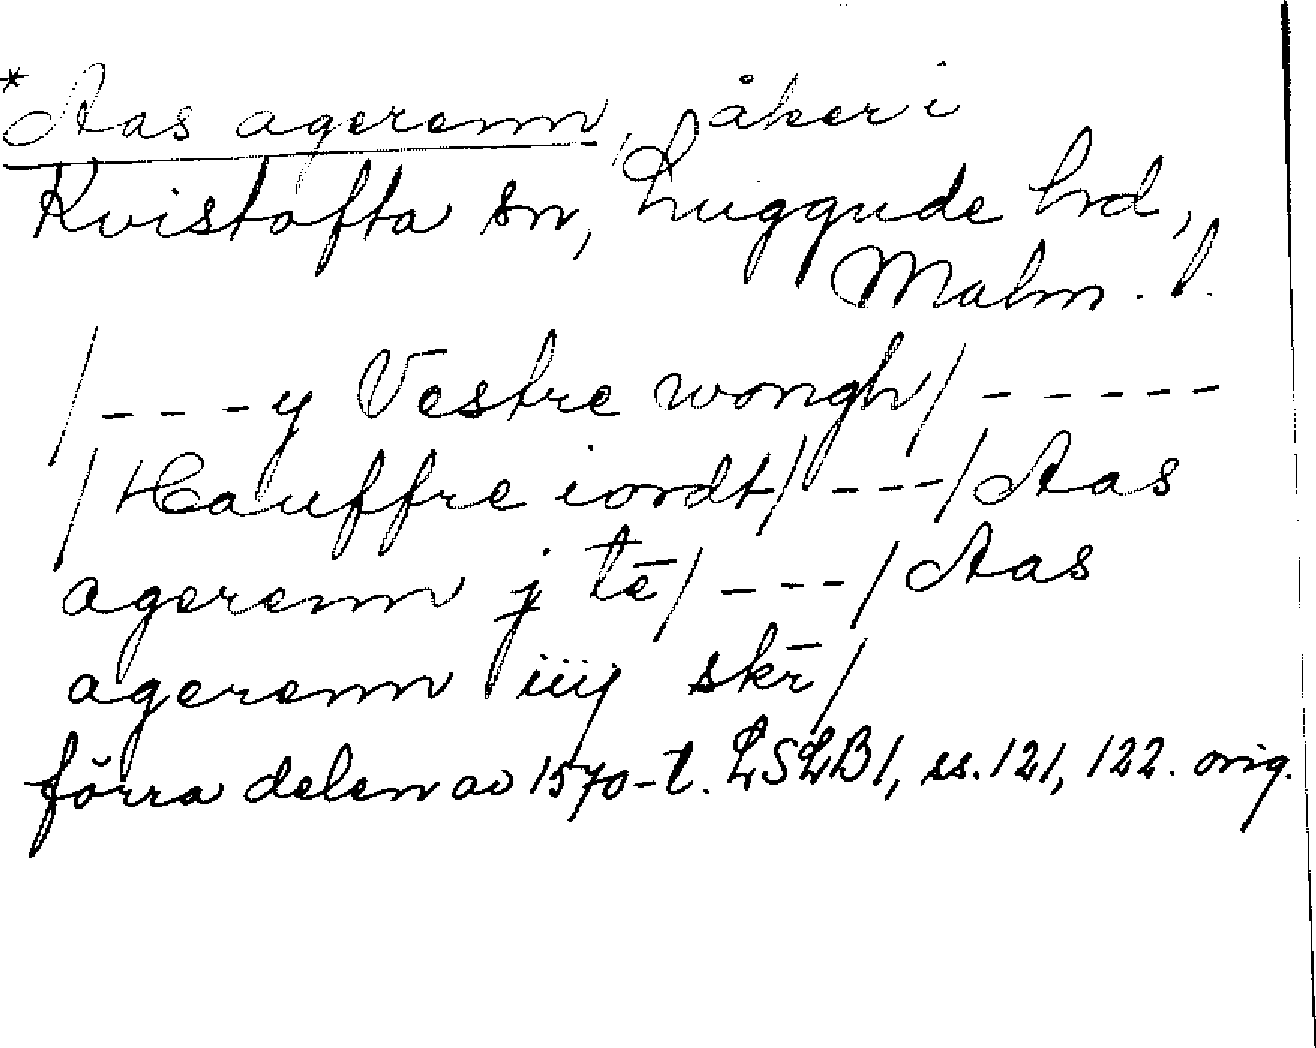 *Aas agerenn, åker i
Kvistofta sn, Luggude hrd,
Malm. l.
/----y Vestre wongh/-----
/Hauffre iordt/---/Aas
agerenn j tē/---/Aas
agerenn iiij skr̄/
förra delen av 1570-t. LSLB1, ss. 121, 122. orig.